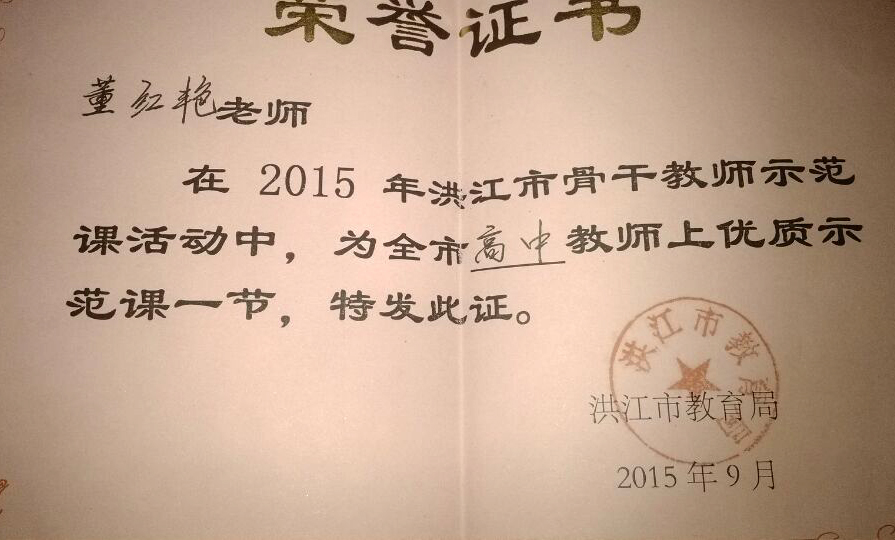 荣誉证书
董红艳老师
在 2015 年洪江市骨干教师示范
课活动中，为全市高中教师上优质示
范课一节，特发此证。
洪江市教育局
洪江市教育局
2015 年 9 月